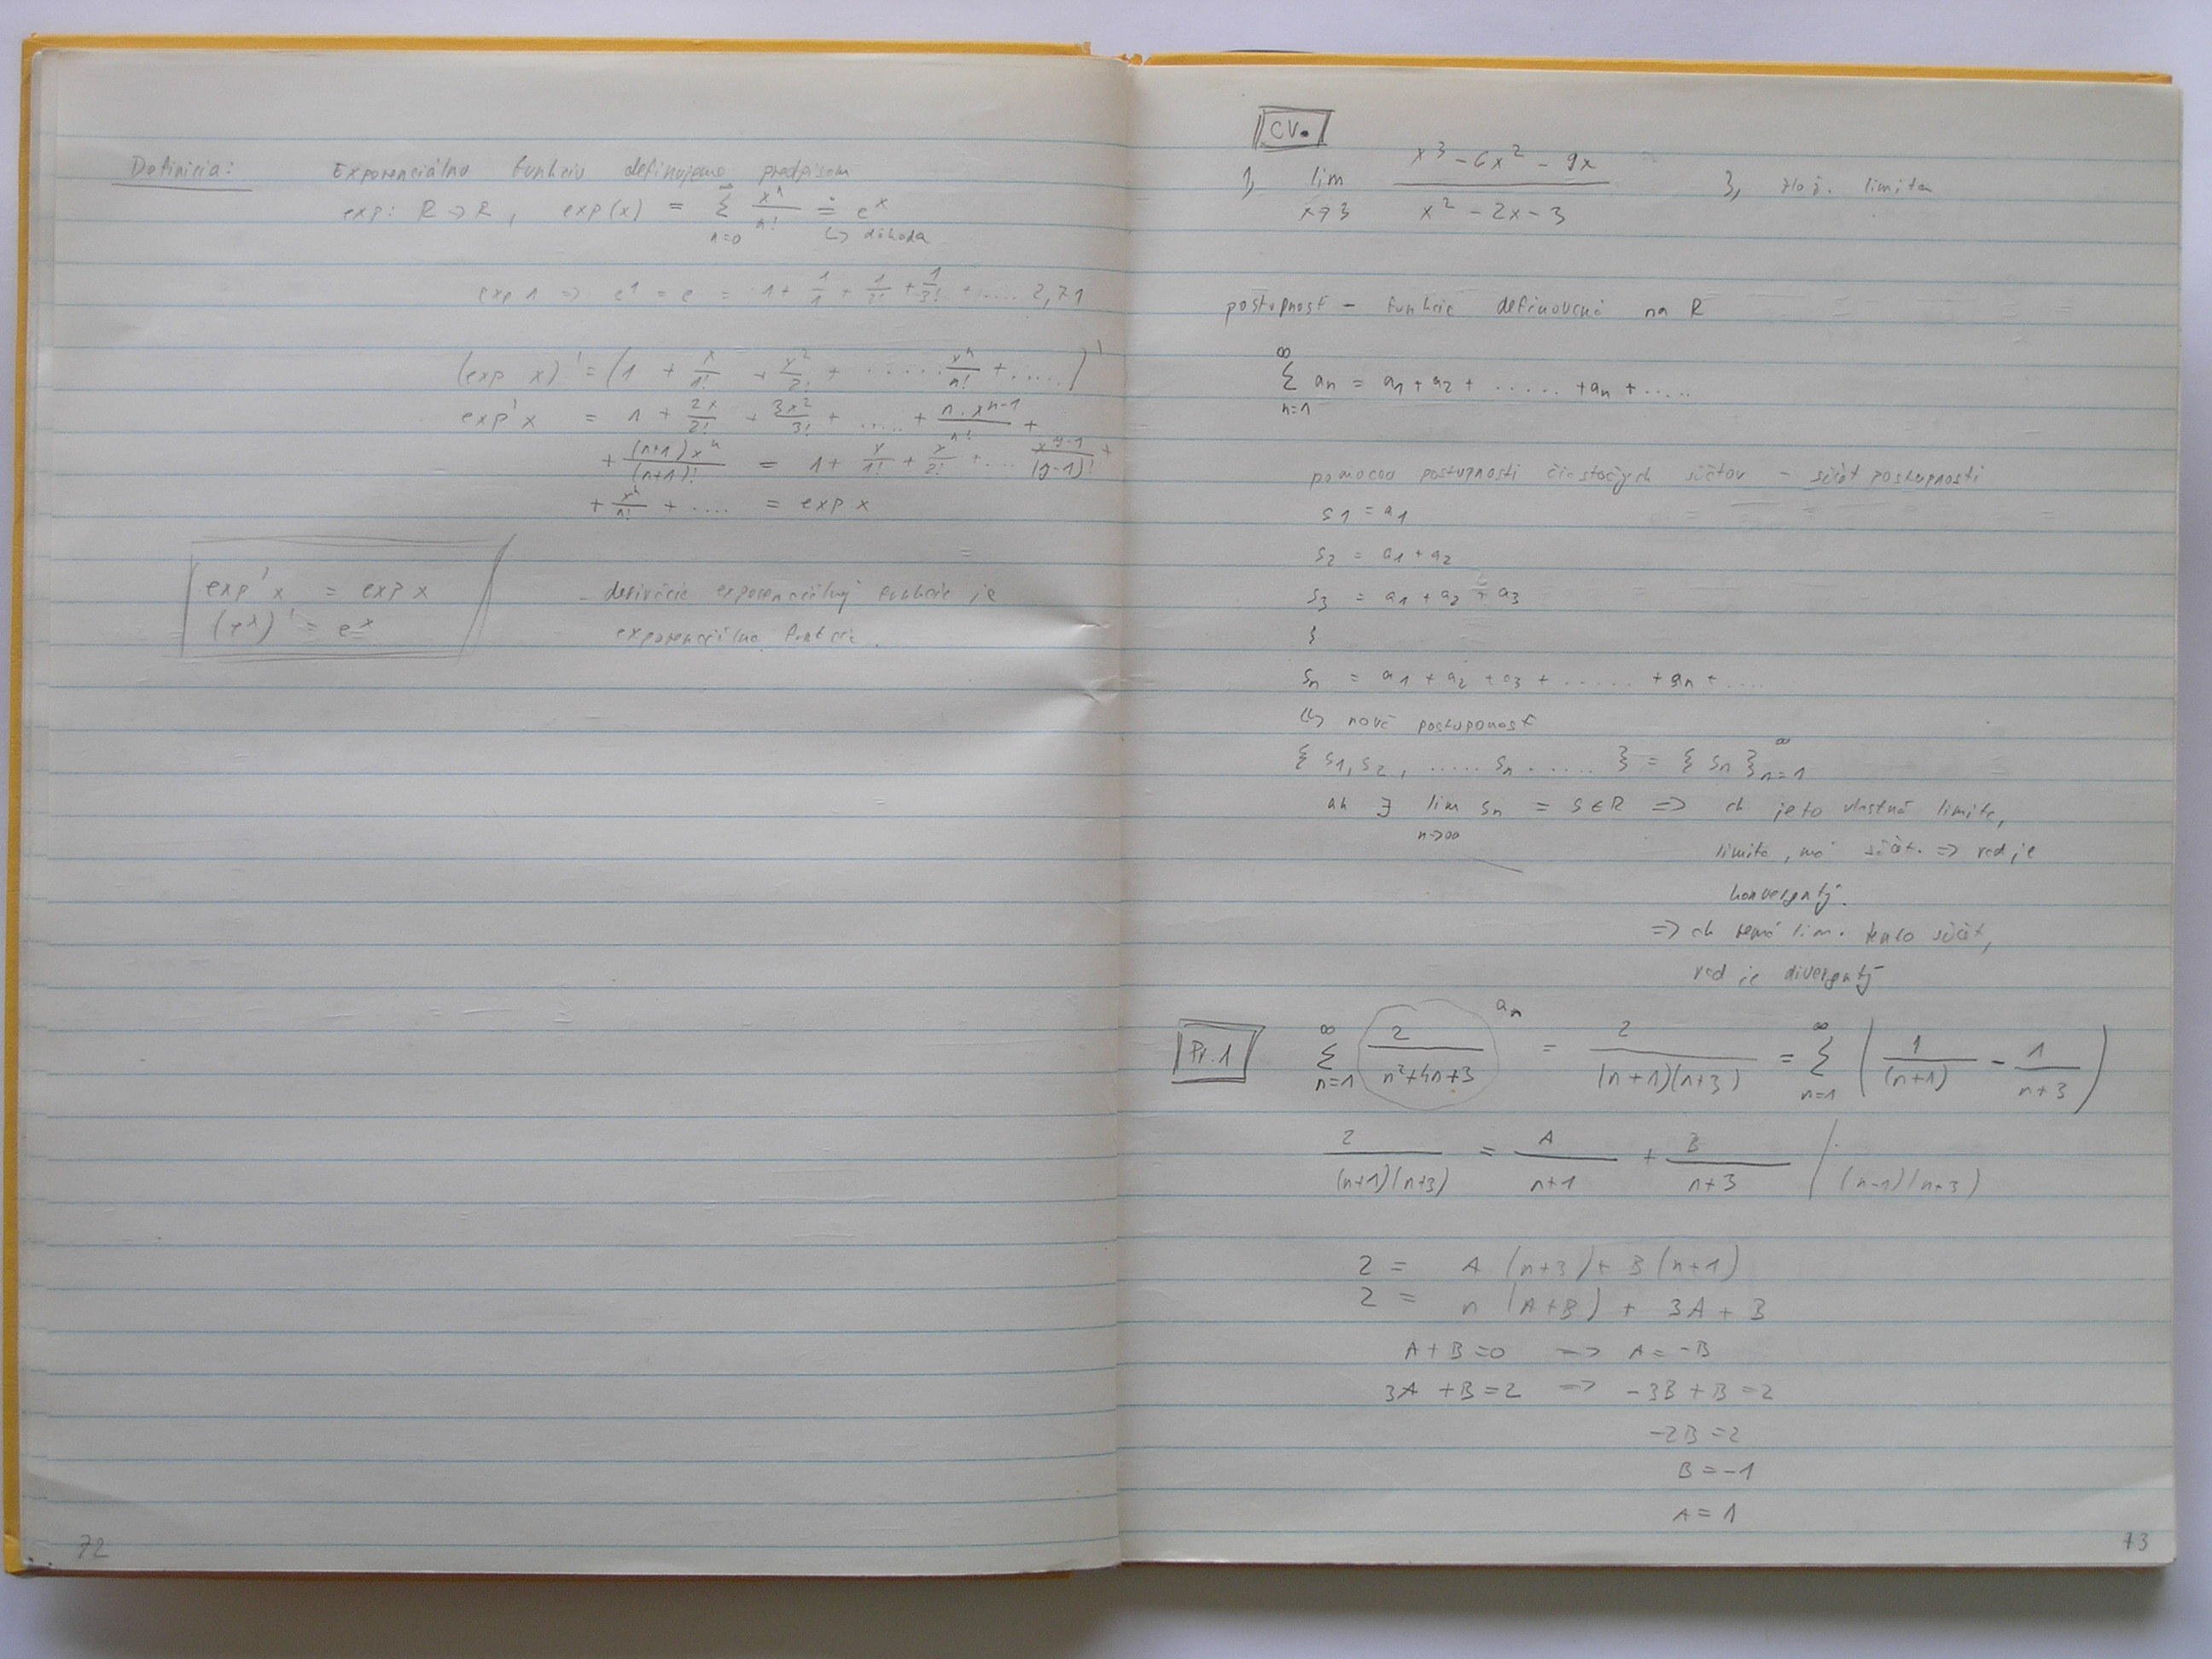 Definícia: Exponenciálnu funkciu definujeme predpisom
exp: R → R, exp(x) = ∞ Σ n=0 x^n/n! ≐ e^x
↳ dohoda
exp 1 => e^1 = e = 1 + 1/1 + 1/2! + 1/3! + .... 2,71
(exp x)' = (1 + x/1! + x^2/2! + ..... x^n/n! + .....)'
exp' x = 1 + 2x/2! + 3x^2/3! + ..... + n.x^n-1/n! +
+ (n+1)x^n/(n+1)! = 1 + x/1! + x^2/2! + ... x^n-1/(n-1)! +
+ x^n/n! + .... = exp x
exp' x = exp x
(e^x)' = e^x
- derivácia exponenciálnej funkcie je
exponenciálna funkcia.
72
CV.
1, lim x→3 x^3 - 6x^2 - 9x / x^2 - 2x - 3 3, zlož. limita
postupnosť - funkcia definovaná na R
∞ Σ n=1 an = a1 + a2 + ...... + an + .....
pomocou postupnosti čiastočných súčtov - súčet postupnosti
s1 = a1
s2 = a1 + a2
s3 = a1 + a2 + a3
sn = a1 + a2 + a3 + ...... + an + ....
↳ nová postuponosť
{ s1, s2, ..... sn ..... } = { sn }∞ n=1
ak ∃ lim n→∞ sn = s ∈ R => ak je to vlastná limita,
limita, má súčet. => rad je
konvergntý.
=> ak nemá lim. tento súčet,
rad je divergntý
Pr. 1 ∞ Σ n=1 2/(n^2+4n+3) an = 2/((n+1)(n+3)) = ∞ Σ n=1 (1/(n+1) - 1/(n+3))
2/((n+1)(n+3)) = A/(n+1) + B/(n+3) /. (n+1)(n+3)
2 = A (n+3) + B (n+1)
2 = n (A+B) + 3A + B
A + B = 0 => A = -B
3A + B = 2 => -3B + B = 2
-2B = 2
B = -1
A = 1
73